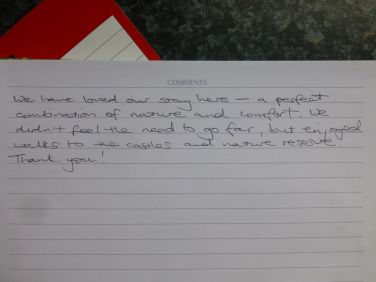 COMMENTS
We have loved our stay here – a perfect
combination of nature and comfort. We
didn't feel the need to go far, but enjoyed
walks to the castles and nature reserve.
Thank you!